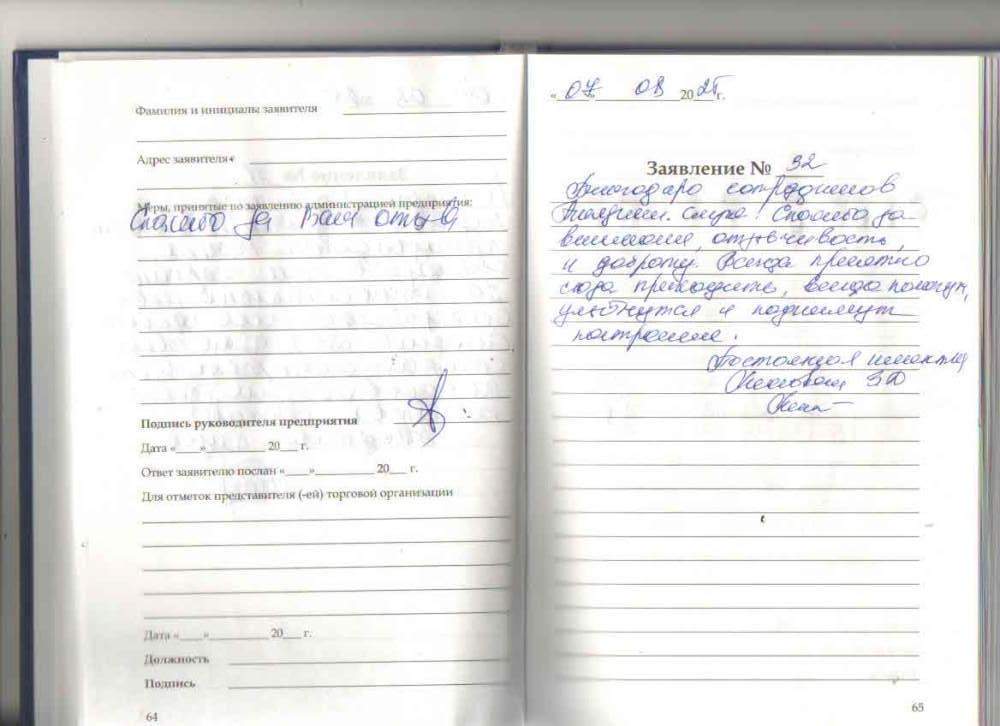 Фамилия и инициалы заявителя
Адрес заявителя
Меры, принятые по заявлению администрацией предприятия:
Спасибо за Ваш отзыв
Подпись руководителя предприятия
Дата «___»_________ 20___ г.
Ответ заявителю послан «___»_________ 20___ г.
Для отметок представителя (-ей) торговой организации
Дата «___»_________ 20___ г.
Должность
Подпись
64
« 07 03 20 25 г.
Заявление № 32
Благодарю сотрудников
Спасибо за
внимание, отзывчивость,
и доброту. Всегда приятно
сюда приходить, всегда помогут,
улыбнутся и поднимут
настроение.
Постоянная
65